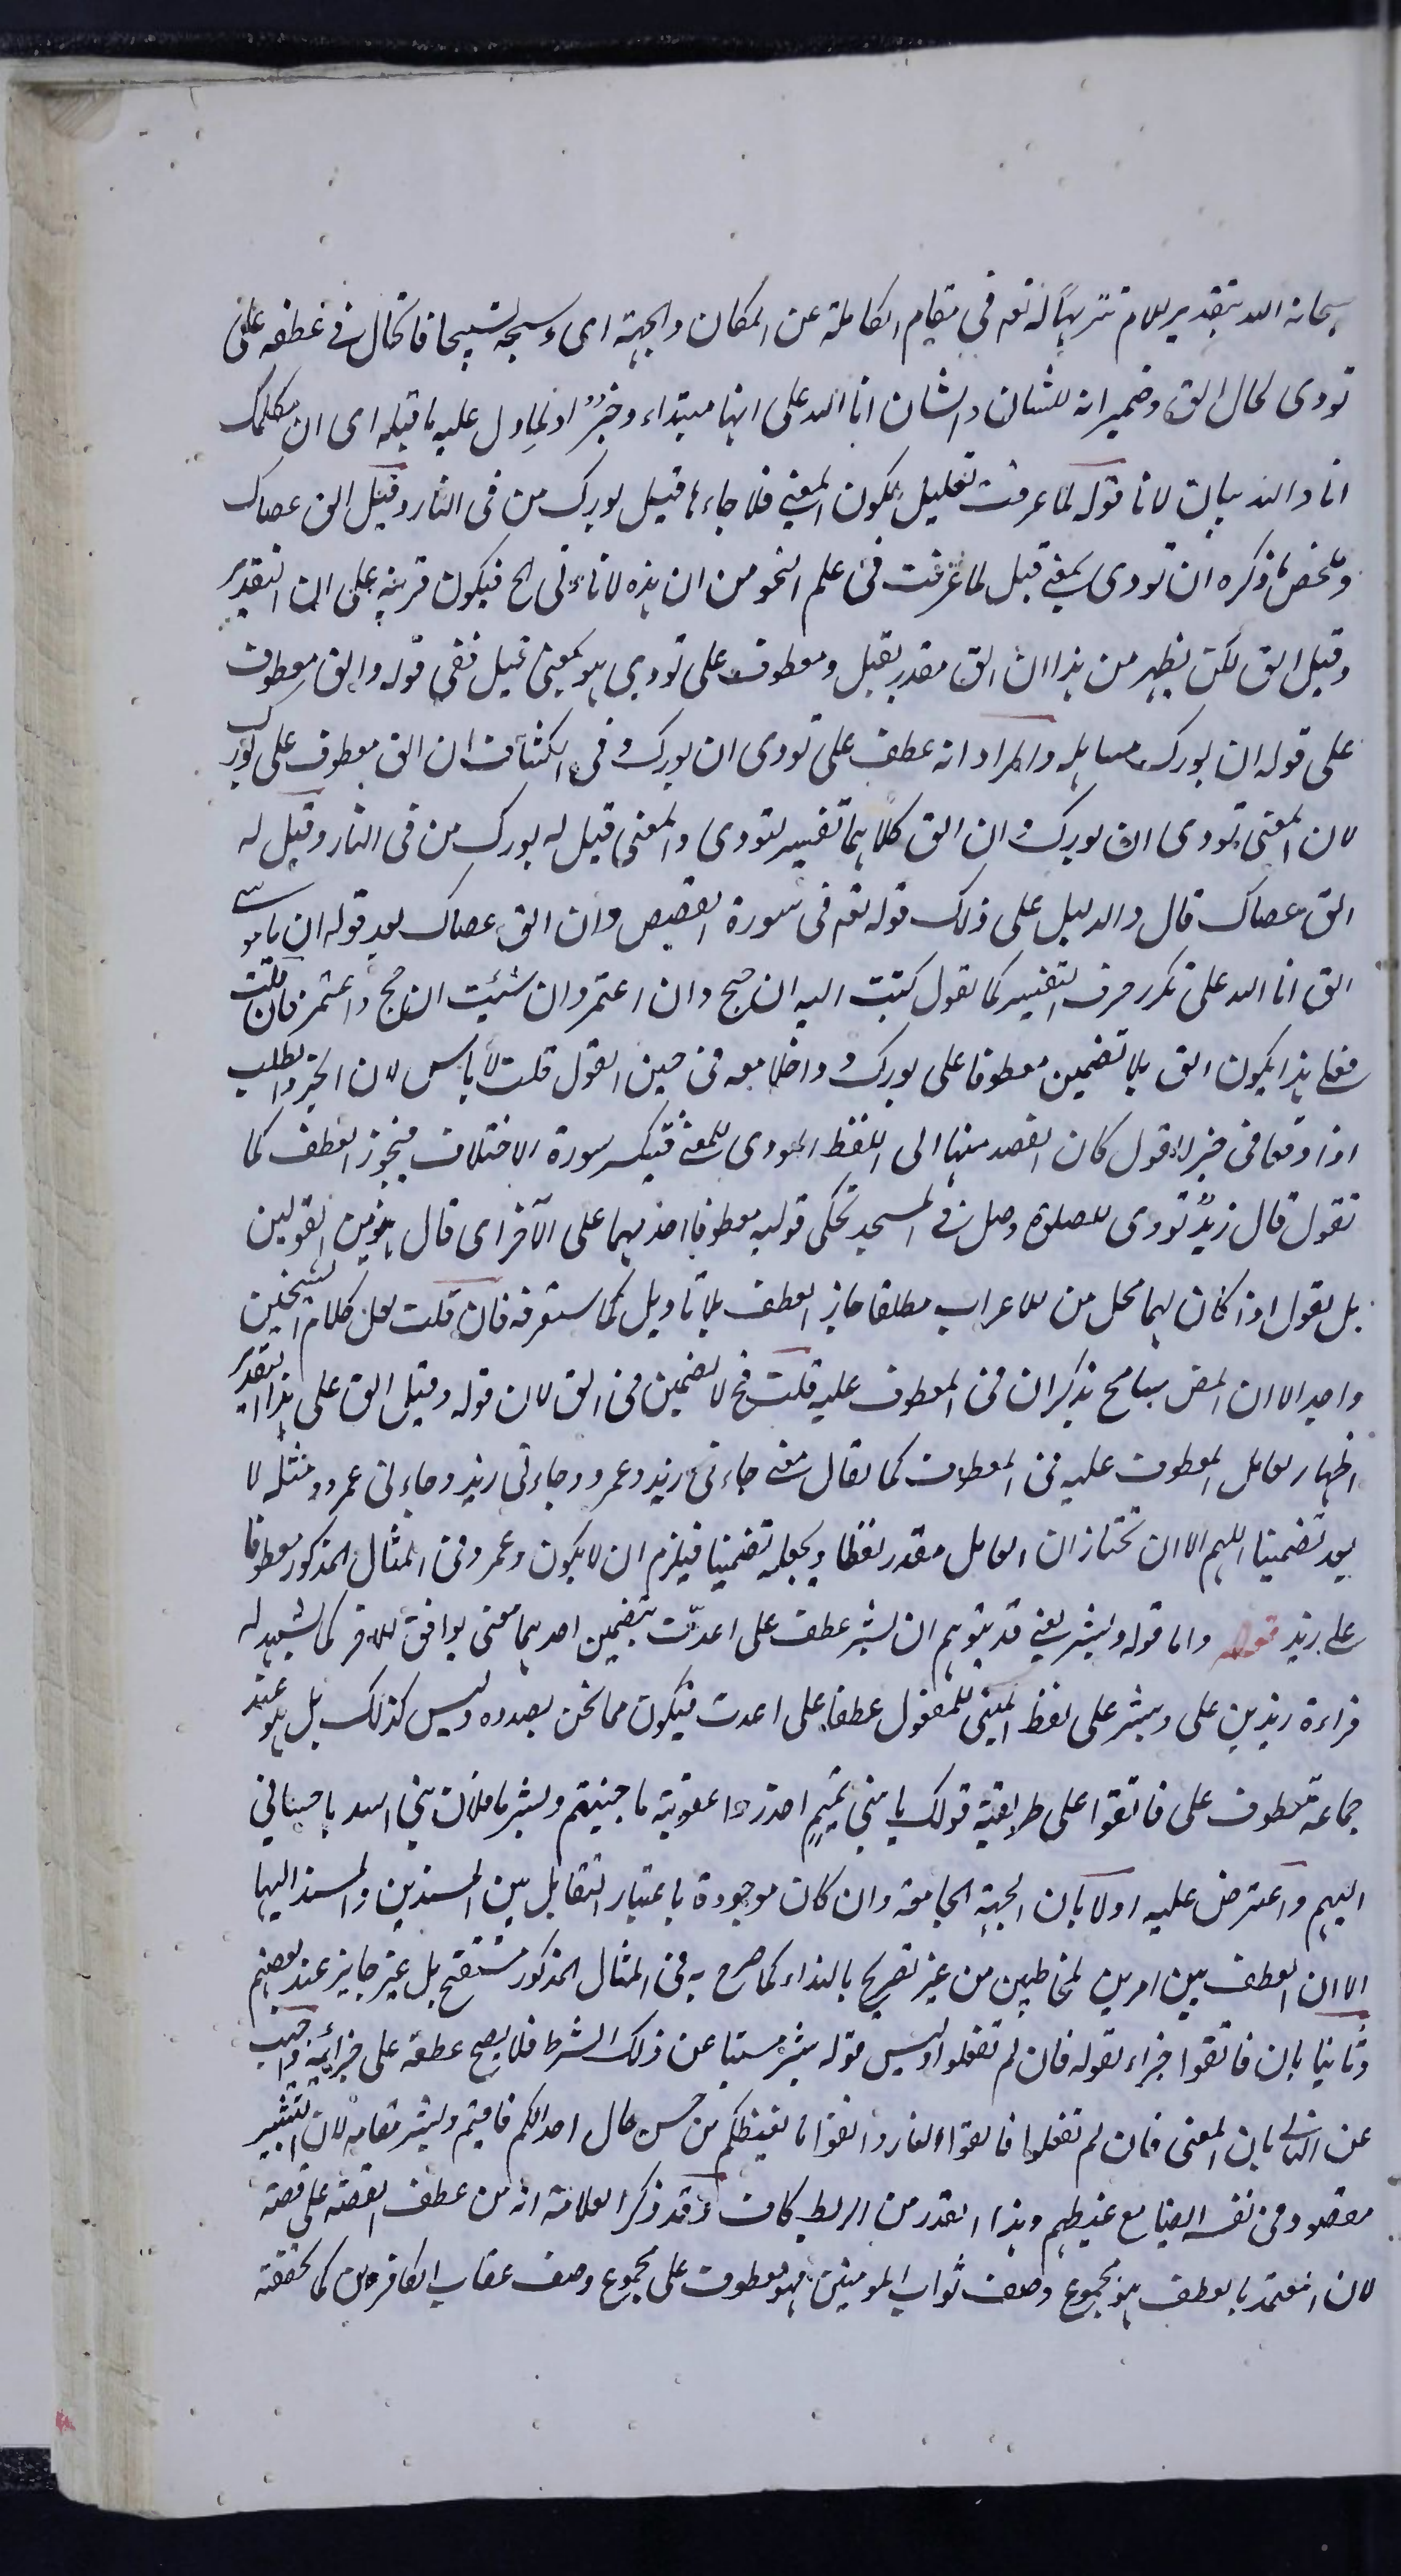 سبحانه الله بتقدير للام تنزيهاً له تعه في مقام الكاملة عن المكان والجهة اى وسبحه تسبيحا فالحال في عطفه على
نودى كحال الق وضمير انه للشان والشان انا الله على انها مبتداء وخبر او لما دل عليه ما قبله اى ان مكلمك
انا والله بيان لانا قوله لما عرفت تعليل لكون المعنى فلما جاءها قيل بورك من فى النار وقيل الق عصاك
وملخص ما ذكره ان نودى بمعنى قيل لما عرفت فى علم النحو من ان هذه لا تاتى الخ فيكون قرينة على ان التقدير
وقيل الق لكن يظهر من هذا ان الق مقدر بقيل ومعطوف على نودى هو بمعنى قيل ففى قوله والق معطوف
على قوله ان بورك مساهلة والمراد انه عطف على نودى ان بورك وفى الكشاف ان الق معطوف على بورك
لان المعنى نودى ان بورك وان الق كلاهما تفسير لنودى والمعنى قيل له بورك من فى النار وقيل له
الق عصاك قال والدليل على ذلك قوله تعه فى سورة القصص وان الق عصاك بعد قوله ان يا موسى
انى انا الله على تكرر حرف التفسير كما تقول كتبت اليه ان حج وان اعتمر وان شئت ان حج واعتمر فان قلت
فعلى هذا يكون الق بلا تضمين معطوفا على بورك و داخلا معه فى حين القول قلت لا باس لان الخبر والطلب
اذا وقعا فى خبر القول كان القصد منها الى اللفظ المودى للمعنى فتنكسر سورة الاختلاف فيجوز العطف كما
تقول قال زيد نودى للصلوة وصل فى المسجد تحكى قوليه معطوفا احدهما على الآخر اى قال هذين القولين
بل نقول اذا كان لهما محل من للاعراب مطلقا جاز العطف بلا تاويل كما ستعرفه فان قلت لعل كلام الشيخين
واحد الا ان المص سامح بذكر ان فى المعطوف عليه قلت فح لا تضمين فى الق لان قوله وقيل الق على هذا التقدير
اظهار لعامل المعطوف عليه فى المعطوف كما يقال معنى جاءنى زيد وعمرو وجاءنى زيد وجاءنى عمرو ومثله لا
يعد تضمينا اللهم الا ان تختار ان العامل مقدر لفظا ويجعله تضمينا فيلزم ان لا يكون وعمرو فى المثال المذكور معطوفا
على زيد قوله واما قوله وبشر يعنى قد يتوهم ان بشر عطف على اعدّت بتضمين احدهما معنى يوافق للآخر كما يشهد له
قراءة زيد بن على وبشر على لفظ المبنى للمفعول عطفا على اعدت فيكون مما نحن بصدده وليس كذلك بل هو عند
جماعة معطوف على فاتقوا على طريقة قولك يا بنى تميم احذروا عقوبة ما جنيتم وبشر يا فلان بنى اسد باحسانى
اليهم واعترض عليه اولا بان الجهة الجامعة وان كان موجودة باعتبار التقابل بين المسندين والمسند اليها
الا ان العطف بين امرين لمخاطبين من غير تصريح بالنداء كما صرح به فى المثال المذكور مستقبح بل غير جايز عند بعضهم
وثانيا بان فاتقوا جزاء لقوله فان لم تفعلوا وليس قوله بشر مسببا عن ذلك الشرط فلا يصح عطفه على جزائه واجيب
عن الثانى بان المعنى فان لم تفعلوا فاتقوا النار واتقوا ما يغيظكم من حسن حال اعدائكم فاقيم وبشر مقامه لان التبشير
مقصود فى نفسه ايضا مع غيظهم وهذا القدر من الربط كاف وقد ذكر العلامة انه من عطف القصة على قصة
لان المعتمد بالعطف هو مجموع وصف ثواب المومنين فهو معطوف على مجموع وصف عقاب الكافرين كما تحققته